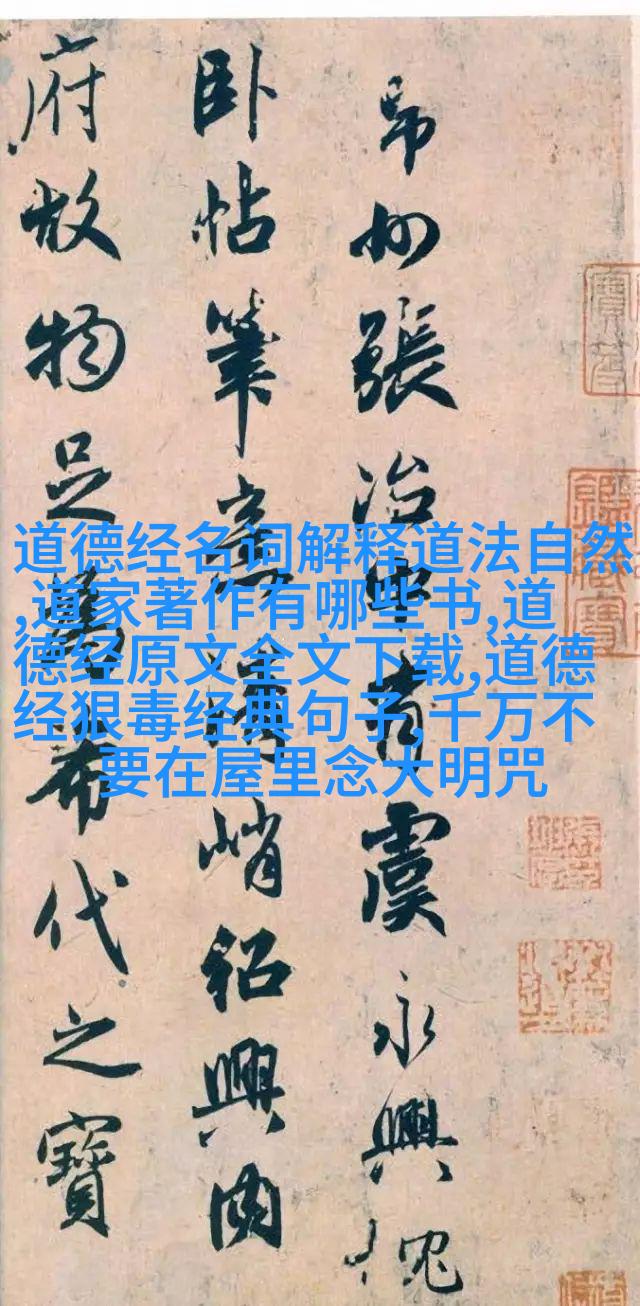 常州張治中有虞永興愧
卧帖筆意清峭紹興内
府故物足為希代之寶
道德经名词解释道法自然
,道家著作有哪些书,道
德经原文全文下载,道德
经狠毒经典句子,千万不
要在屋里念大明咒